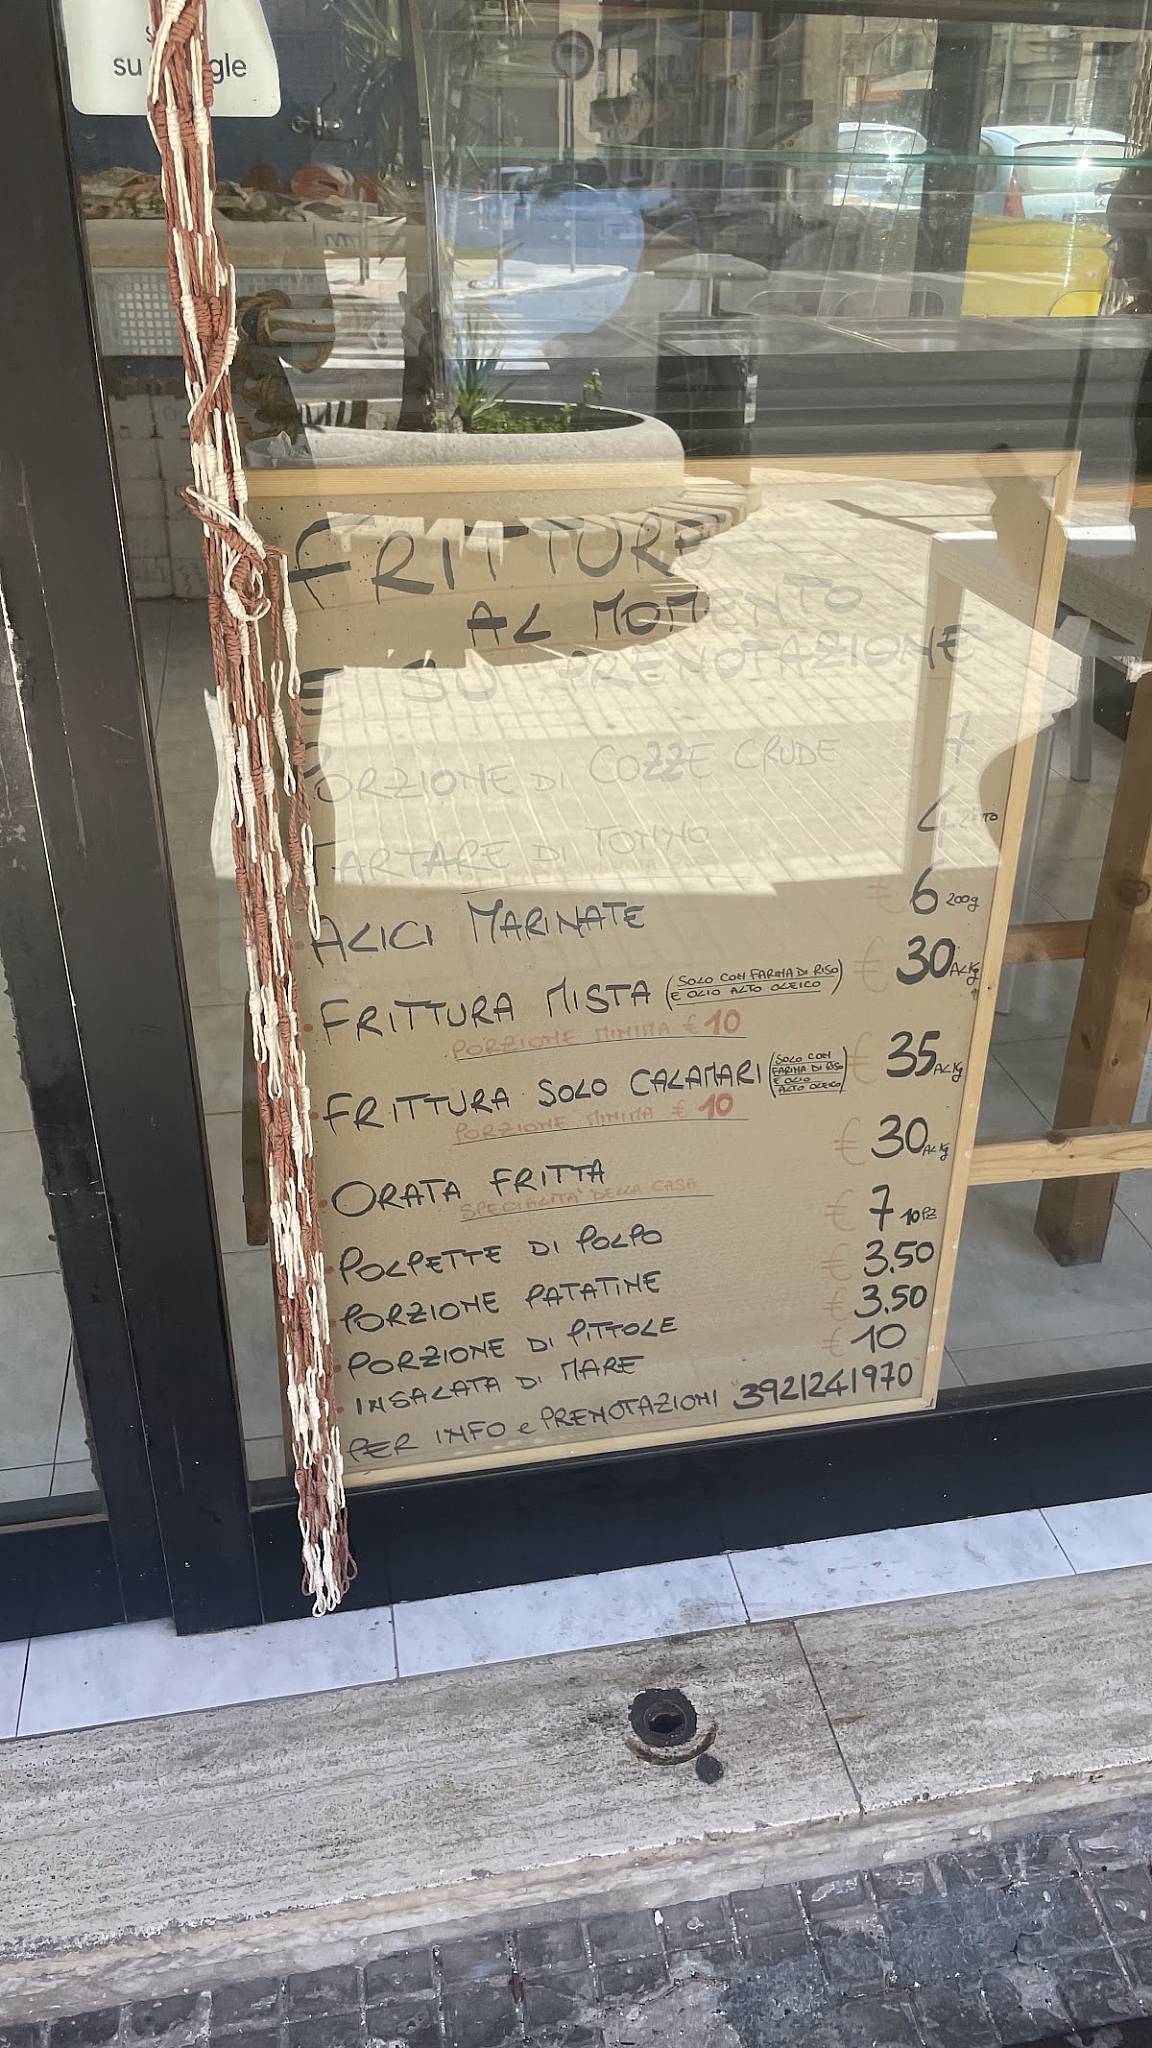 su
gle
FRITTURE
AL MOMENTO
E SU PRENOTAZIONE
PORZIONE DI COZZE CRUDE 7
TARTARE DI TONNO 4 L'ETTO
ALICI MARINATE € 6 200g
FRITTURA MISTA (SOLO CON FARINA DI RISO E OLIO ALTO OLEICO) € 30 AL Kg
PORZIONE MINIMA € 10
FRITTURA SOLO CALAMARI (SOLO CON FARINA DI RISO E OLIO ALTO OLEICO) € 35 AL Kg
PORZIONE MINIMA € 10
ORATA FRITTA € 30 AL Kg
SPECIALITA' DELLA CASA
POLPETTE DI POLPO € 7 10PZ
PORZIONE PATATINE € 3.50
PORZIONE DI PITTOLE € 3.50
INSALATA DI MARE € 10
PER INFO e PRENOTAZIONI "3921241970"